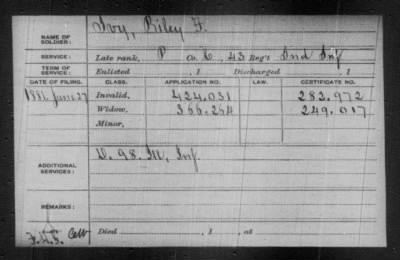 NAME OF SOLDIER: Ivy, Riley F.
SERVICE: Late rank, P Co. C, 43 Reg't Ind Inf
TERM OF SERVICE: Enlisted , 1 Discharged , 1
DATE OF FILING. CLASS. APPLICATION NO. LAW. CERTIFICATE NO.
1881 June 27 Invalid, 424.031 283.972
Widow, 366.254 249.017
Minor,
ADDITIONAL SERVICES: D. 98. Ill, Inf.
REMARKS:
Died , 1 , at